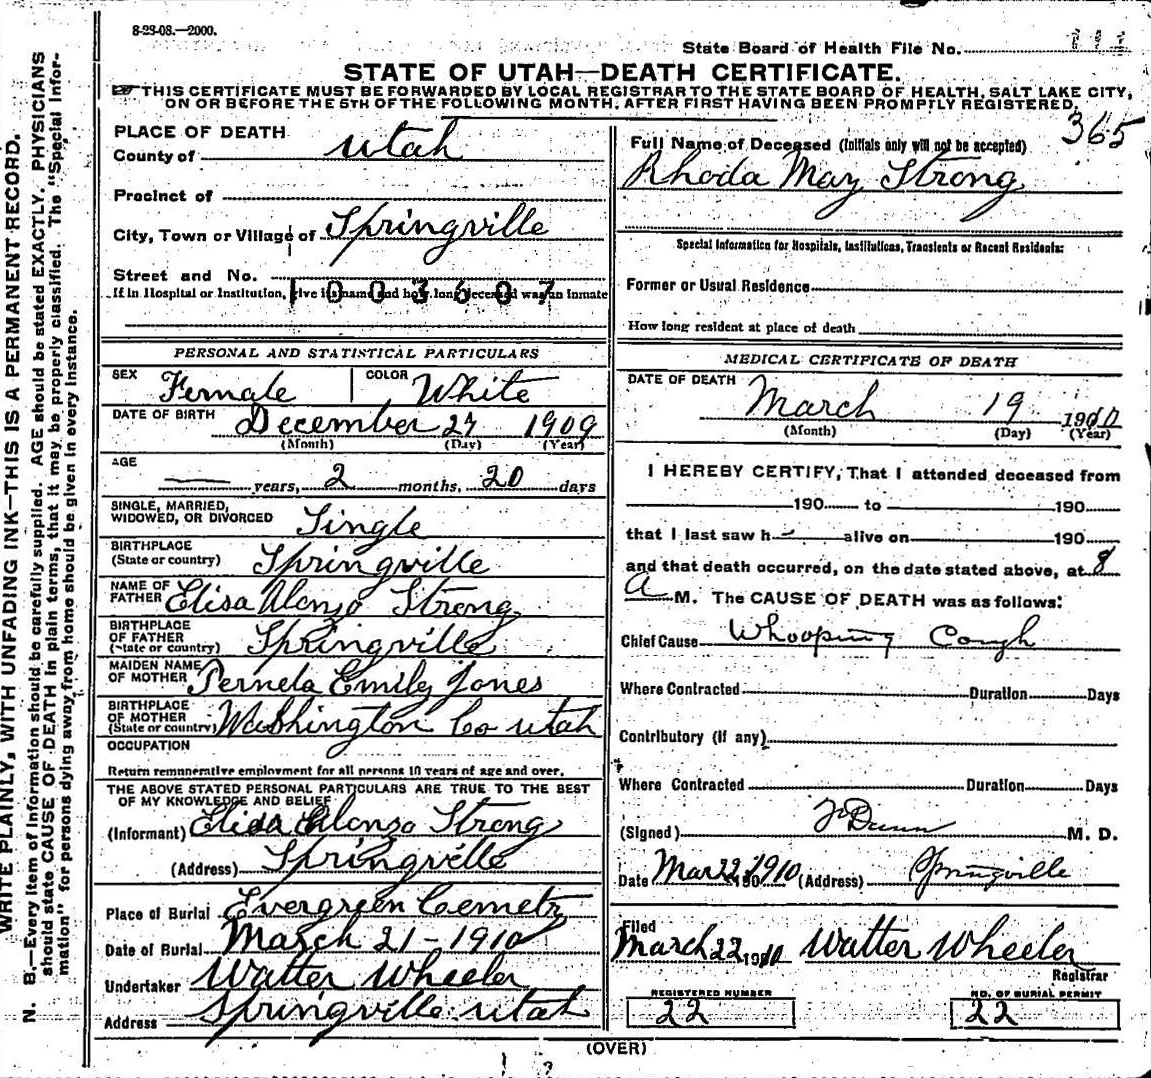 8-23-08.—2000.
State Board of Health File No. 111
STATE OF UTAH—DEATH CERTIFICATE.
THIS CERTIFICATE MUST BE FORWARDED BY LOCAL REGISTRAR TO THE STATE BOARD OF HEALTH, SALT LAKE CITY,
ON OR BEFORE THE 5TH OF THE FOLLOWING MONTH, AFTER FIRST HAVING BEEN PROMPTLY REGISTERED.
365
WRITE PLAINLY, WITH UNFADING INK—THIS IS A PERMANENT RECORD.
N. B.—Every item of Information should be carefully supplied. AGE should be stated EXACTLY. PHYSICIANS
should state CAUSE OF DEATH in plain terms, that it may be properly classified. The "Special Infor-
mation" for persons dying away from home should be given in every instance.
PLACE OF DEATH
County of Utah
Precinct of
City, Town or Village of Springville
Street and No.
If in Hospital or Institution, give its name and how long deceased was an inmate
1003607
PERSONAL AND STATISTICAL PARTICULARS
SEX Female COLOR White
DATE OF BIRTH December 27 1909
(Month) (Day) (Year)
AGE — years, 2 months, 20 days
SINGLE, MARRIED,
WIDOWED, OR DIVORCED Single
BIRTHPLACE
(State or country) Springville
NAME OF
FATHER Elisa Alonzo Strong
BIRTHPLACE
OF FATHER
(State or country) Springville
MAIDEN NAME
OF MOTHER Pernela Emily Jones
BIRTHPLACE
OF MOTHER
(State or country) Washington Co Utah
OCCUPATION
Return remunerative employment for all persons 10 years of age and over.
THE ABOVE STATED PERSONAL PARTICULARS ARE TRUE TO THE BEST
OF MY KNOWLEDGE AND BELIEF
(Informant) Elisa Alonzo Strong
(Address) Springville
Place of Burial Evergreen Cemetry
Date of Burial March 21-1910
Undertaker Walter Wheeler
Address Springville Utah
Full Name of Deceased (Initials only will not be accepted)
Rhoda May Strong
Special Information for Hospitals, Institutions, Transients or Recent Residents:
Former or Usual Residence
How long resident at place of death
MEDICAL CERTIFICATE OF DEATH
DATE OF DEATH
March 19 1910
(Month) (Day) (Year)
I HEREBY CERTIFY, That I attended deceased from
190 to 190
that I last saw h alive on 190
and that death occurred, on the date stated above, at 8
A M. The CAUSE OF DEATH was as follows:
Chief Cause Whooping Cough
Where Contracted Duration Days
Contributory (if any)
Where Contracted Duration Days
(Signed) Dunn M. D.
Date Mar 22 1910 190 (Address) Springville
Filed
March 22 1910 Walter Wheeler
Registrar
REGISTERED NUMBER
22
NO. OF BURIAL PERMIT
22
(OVER)